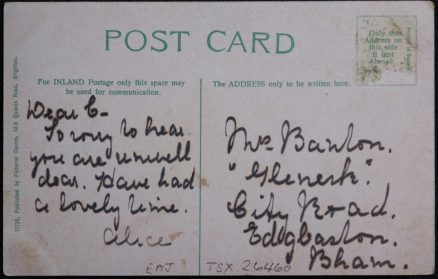 POST CARD
Only this
Address on
this side
if sent
Abroad.
For INLAND Postage only this space may
be used for communication.
The ADDRESS only to be written here.
Dear C-
So sorry to hear
you are unwell
dear. Have had
a lovely time.
Alice
Mrs Barton.
"Glenesk".
City Road.
Edgbaston.
Bham.
EAJ TSX 26460
Published by Pictorial Centre, Queens Road, Brighton.